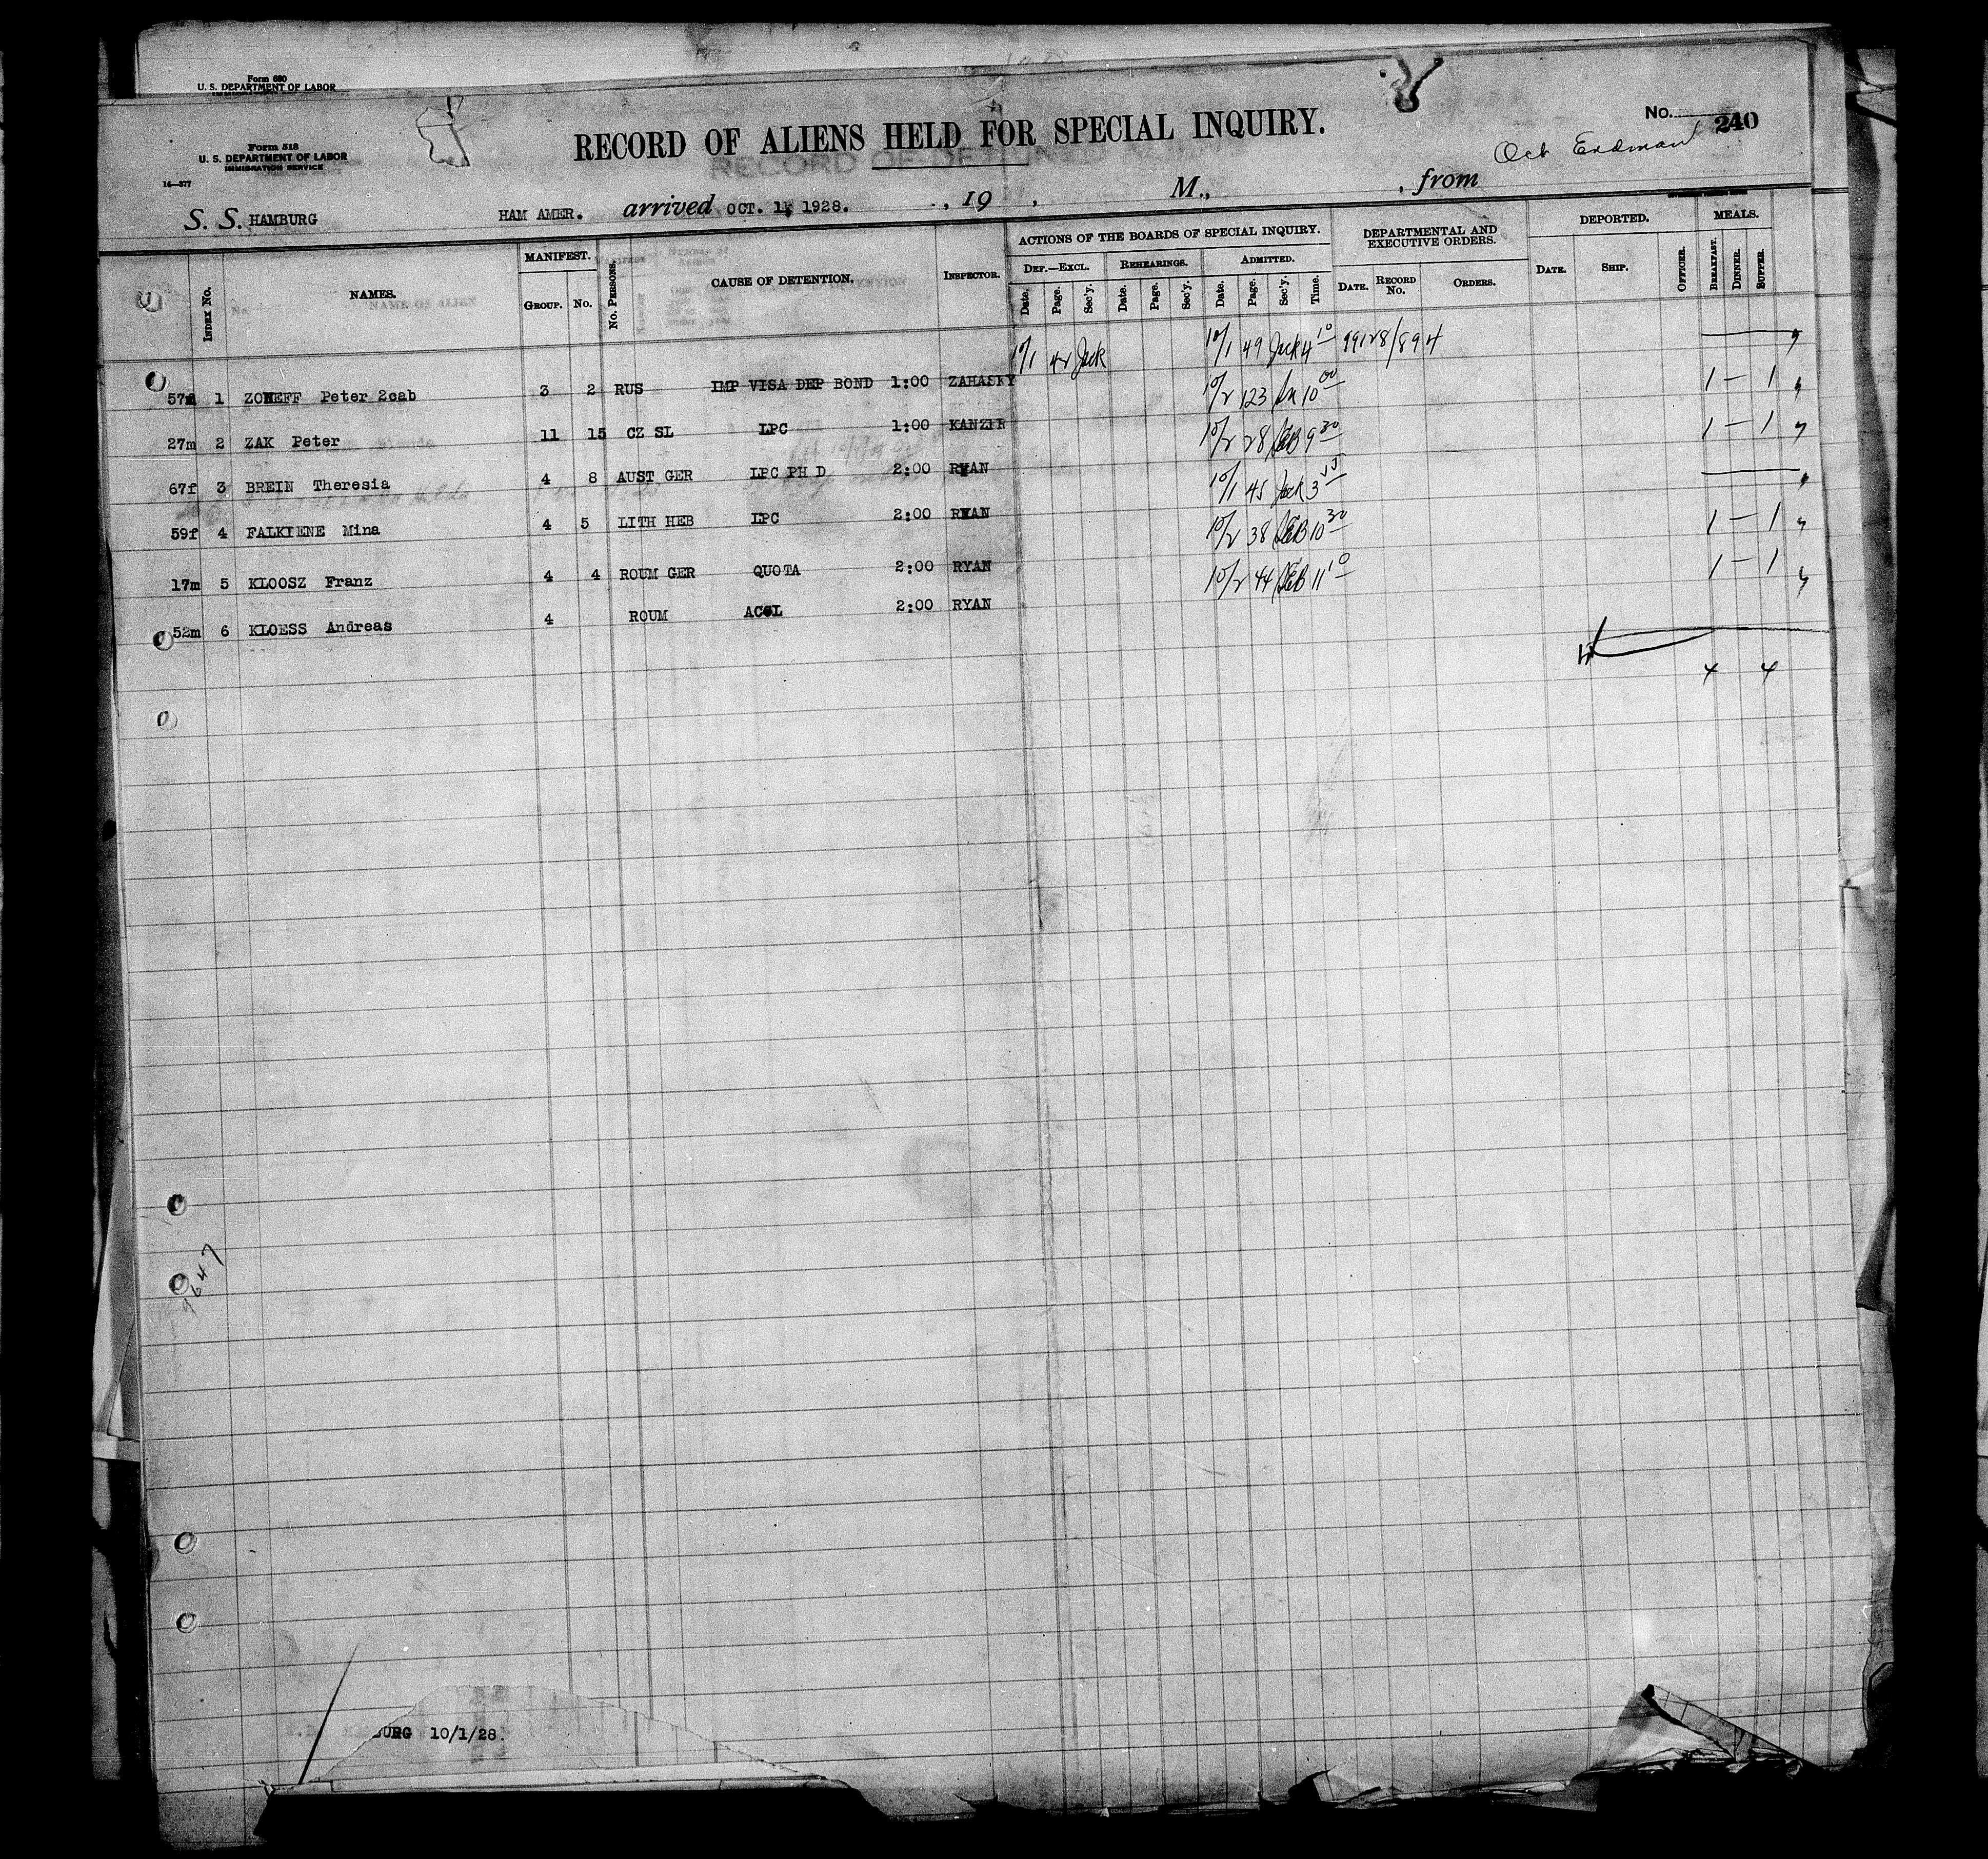 Form 680
U. S. DEPARTMENT OF LABOR
Form 518
U. S. DEPARTMENT OF LABOR
IMMIGRATION SERVICE
14—377
RECORD OF ALIENS HELD FOR SPECIAL INQUIRY.
No. 240
S. S. HAMBURG HAM AMER. arrived OCT. 1, 1928. , 19 , M., , from
INDEX No. NAMES. MANIFEST. GROUP. No. No. PERSONS. CAUSE OF DETENTION. INSPECTOR. ACTIONS OF THE BOARDS OF SPECIAL INQUIRY. DEF.—EXCL. Date. Page. Sec'y. REHEARINGS. Date. Page. Sec'y. ADMITTED. Date. Page. Sec'y. Time. DEPARTMENTAL AND EXECUTIVE ORDERS. DATE. RECORD No. ORDERS. DEPORTED. DATE. SHIP. OFFICER. MEALS. BREAKFAST. DINNER. SUPPER.
57m 1 ZONEFF Peter 2cab 3 2 RUS IMP VISA DEP BOND 1:00 ZAHASKY 10/1 42 Jack 10/1 49 Jack 4 10 99128/894
27m 2 ZAK Peter 11 15 CZ SL LPC 1:00 KANZER 10/2 123 10 00 1 — 1
67f 3 BREIN Theresia 4 8 AUST GER LPC PH D 2:00 RYAN 10/2 28 9 30 1 — 1
59f 4 FALKIENE Mina 4 5 LITH HEB LPC 2:00 RYAN 10/1 45 Jack 3
17m 5 KLOOSZ Franz 4 4 ROUM GER QUOTA 2:00 RYAN 10/2 38 10 30 1 — 1
52m 6 KLOESS Andreas 4 ROUM ACOL 2:00 RYAN 10/2 44 11 10 1 — 1
4 4
9647
BURG 10/1/28.